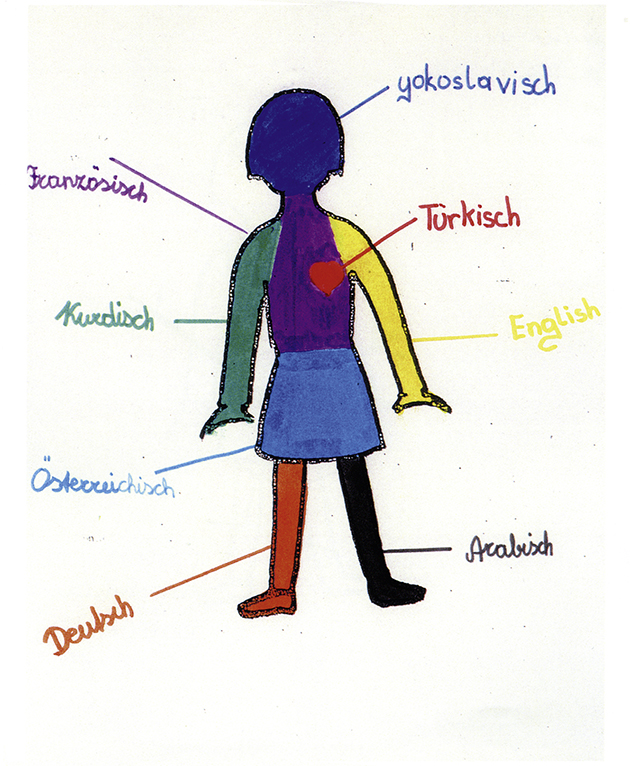 yokoslavisch
Französisch
Türkisch
Kurdisch
English
Österreichisch
Arabisch
Deutsch